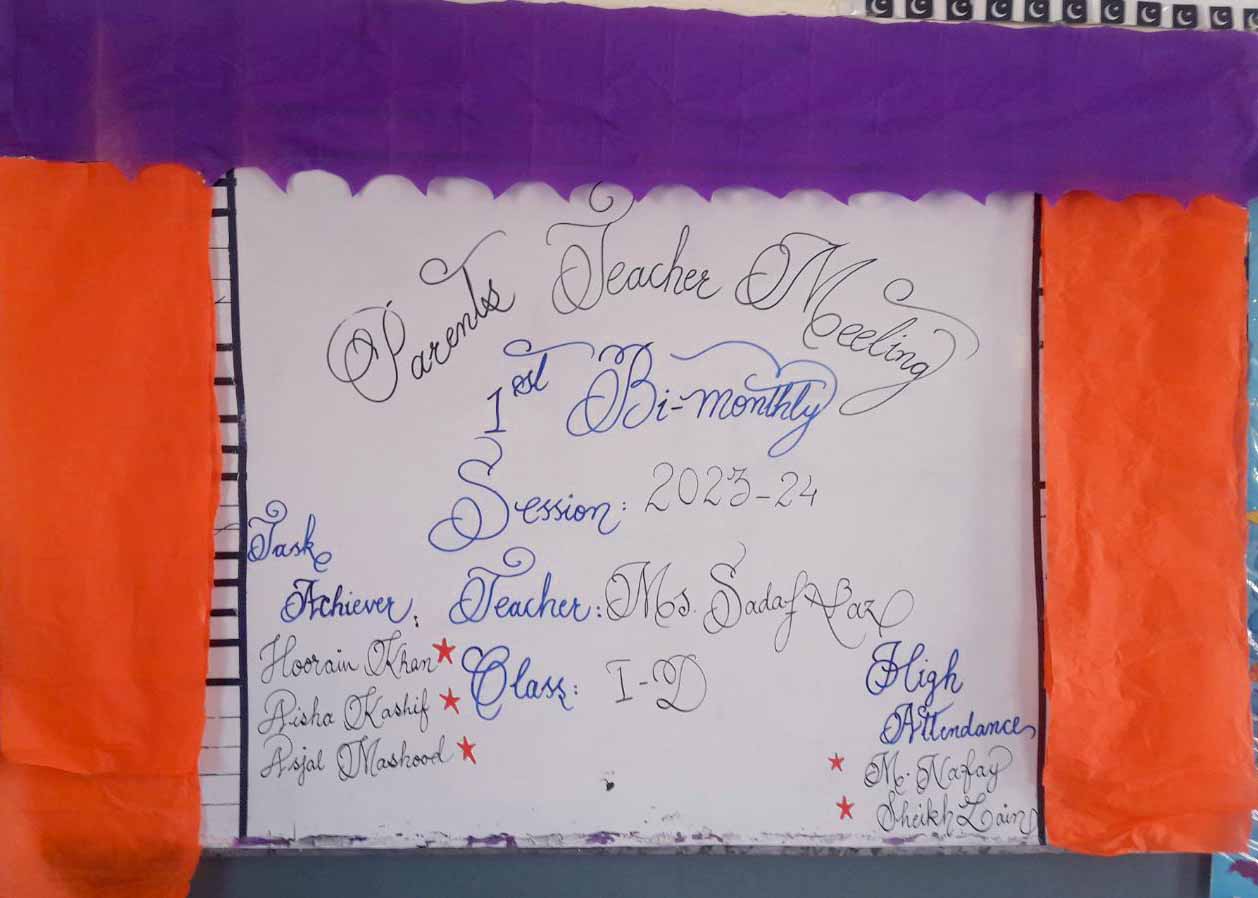 Parents Teacher Meeting
1st Bi-monthly
Session: 2023-24
Task
Achiever:
Hoorain Khan
Aisha Kashif
Asjal Mashood
Teacher: Ms. Sadaf Naz
Class: I-D
High
Attendance
M. Nafay
Sheikh Zain